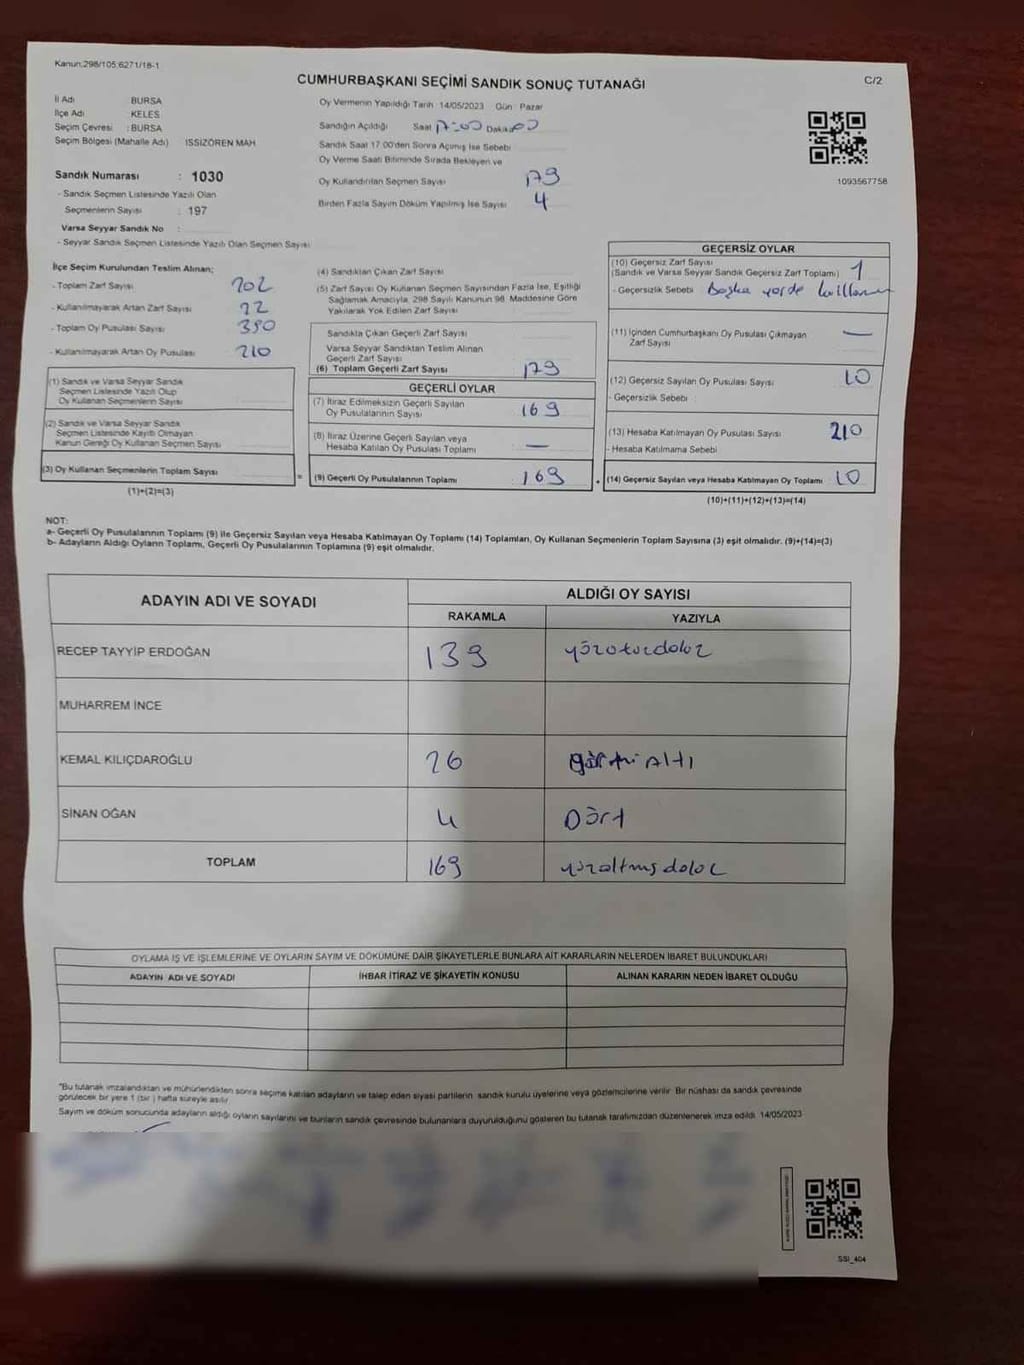 Kanun:298/105,6271/18-1
CUMHURBAŞKANI SEÇİMİ SANDIK SONUÇ TUTANAĞI
C/2
İl Adı BURSA
İlçe Adı KELES
Seçim Çevresi : BURSA
Seçim Bölgesi (Mahalle Adı) ISSIZÖREN MAH
Sandık Numarası : 1030
- Sandık Seçmen Listesinde Yazılı Olan
Seçmenlerin Sayısı : 197
Varsa Seyyar Sandık No :
- Seyyar Sandık Seçmen Listesinde Yazılı Olan Seçmen Sayısı
Oy Vermenin Yapıldığı Tarih 14/05/2023 Gün : Pazar
Sandığın Açıldığı Saat 17:00 Dakika 00
Sandık Saat 17.00'den Sonra Açılmış İse Sebebi
Oy Verme Saati Bitiminde Sırada Bekleyen ve
Oy Kullandırılan Seçmen Sayısı 179
Birden Fazla Sayım Döküm Yapılmış İse Sayısı 4
1093567758
İlçe Seçim Kurulundan Teslim Alınan;
- Toplam Zarf Sayısı 202
- Kullanılmayarak Artan Zarf Sayısı 22
- Toplam Oy Pusulası Sayısı 390
- Kullanılmayarak Artan Oy Pusulası 210
(1) Sandık ve Varsa Seyyar Sandık
Seçmen Listesinde Yazılı Olup
Oy Kullanan Seçmenlerin Sayısı
(2) Sandık ve Varsa Seyyar Sandık
Seçmen Listesinde Kayıtlı Olmayan
Kanun Gereği Oy Kullanan Seçmen Sayısı
(3) Oy Kullanan Seçmenlerin Toplam Sayısı
(1)+(2)=(3)
=
(4) Sandıktan Çıkan Zarf Sayısı
(5) Zarf Sayısı Oy Kullanan Seçmen Sayısından Fazla İse, Eşitliği
Sağlamak Amacıyla, 298 Sayılı Kanunun 98. Maddesine Göre
Yakılarak Yok Edilen Zarf Sayısı
Sandıkta Çıkan Geçerli Zarf Sayısı
Varsa Seyyar Sandıktan Teslim Alınan
Geçerli Zarf Sayısı
(6) Toplam Geçerli Zarf Sayısı 179
GEÇERLİ OYLAR
(7) İtiraz Edilmeksizin Geçerli Sayılan
Oy Pusulalarının Sayısı 169
(8) İtiraz Üzerine Geçerli Sayılan veya
Hesaba Katılan Oy Pusulası Toplamı —
(9) Geçerli Oy Pusulalarının Toplamı 169
+
GEÇERSİZ OYLAR
(10) Geçersiz Zarf Sayısı
(Sandık ve Varsa Seyyar Sandık Geçersiz Zarf Toplamı) 1
- Geçersizlik Sebebi Başka yerde
(11) İçinden Cumhurbaşkanı Oy Pusulası Çıkmayan
Zarf Sayısı —
(12) Geçersiz Sayılan Oy Pusulası Sayısı 10
- Geçersizlik Sebebi
(13) Hesaba Katılmayan Oy Pusulası Sayısı 210
- Hesaba Katılmama Sebebi
(14) Geçersiz Sayılan veya Hesaba Katılmayan Oy Toplamı 10
(10)+(11)+(12)+(13)=(14)
NOT:
a- Geçerli Oy Pusulalarının Toplamı (9) ile Geçersiz Sayılan veya Hesaba Katılmayan Oy Toplamı (14) Toplamları, Oy Kullanan Seçmenlerin Toplam Sayısına (3) eşit olmalıdır. (9)+(14)=(3)
b- Adayların Aldığı Oyların Toplamı, Geçerli Oy Pusulalarının Toplamına (9) eşit olmalıdır.
ADAYIN ADI VE SOYADI
ALDIĞI OY SAYISI
RAKAMLA YAZIYLA
RECEP TAYYİP ERDOĞAN 139 yüzotuzdokuz
MUHARREM İNCE
KEMAL KILIÇDAROĞLU 26 Altı
SİNAN OĞAN 4 Dört
TOPLAM 169 yüzaltmışdokuz
OYLAMA İŞ VE İŞLEMLERİNE VE OYLARIN SAYIM VE DÖKÜMÜNE DAİR ŞİKAYETLERLE BUNLARA AİT KARARLARIN NELERDEN İBARET BULUNDUKLARI
ADAYIN ADI VE SOYADI İHBAR İTİRAZ VE ŞİKAYETİN KONUSU ALINAN KARARIN NEDEN İBARET OLDUĞU
"Bu tutanak imzalandıktan ve mühürlendikten sonra seçime katılan adayların ve talep eden siyasi partilerin sandık kurulu üyelerine veya gözlemcilerine verilir. Bir nüshası da sandık çevresinde
görülecek bir yere 1 (bir) hafta süreyle asılır
Sayım ve döküm sonucunda adayların aldığı oyların sayılarını ve bunların sandık çevresinde bulunanlara duyurulduğunu gösteren bu tutanak tarafımızdan düzenlenerek imza edildi. 14/05/2023
SSI_404